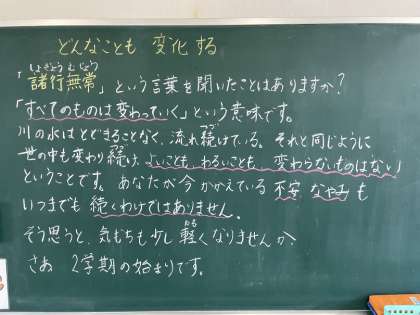 どんなことも 変化する
しょぎょうむじょう
「諸行無常」という言葉を聞いたことはありますか?
「すべてのものは変わっていく」という意味です。
川の水はとぎれることなく、流れ続けている。それと同じように
世の中も変わり続け、よいことも、わるいことも、変わらないものはない
ということです。あなたが今かかえている不安、なやみも
いつまでも 続くわけではありません。
そう思うと、気もちも少し軽くなりませんか。
さあ 2学期の始まりです。